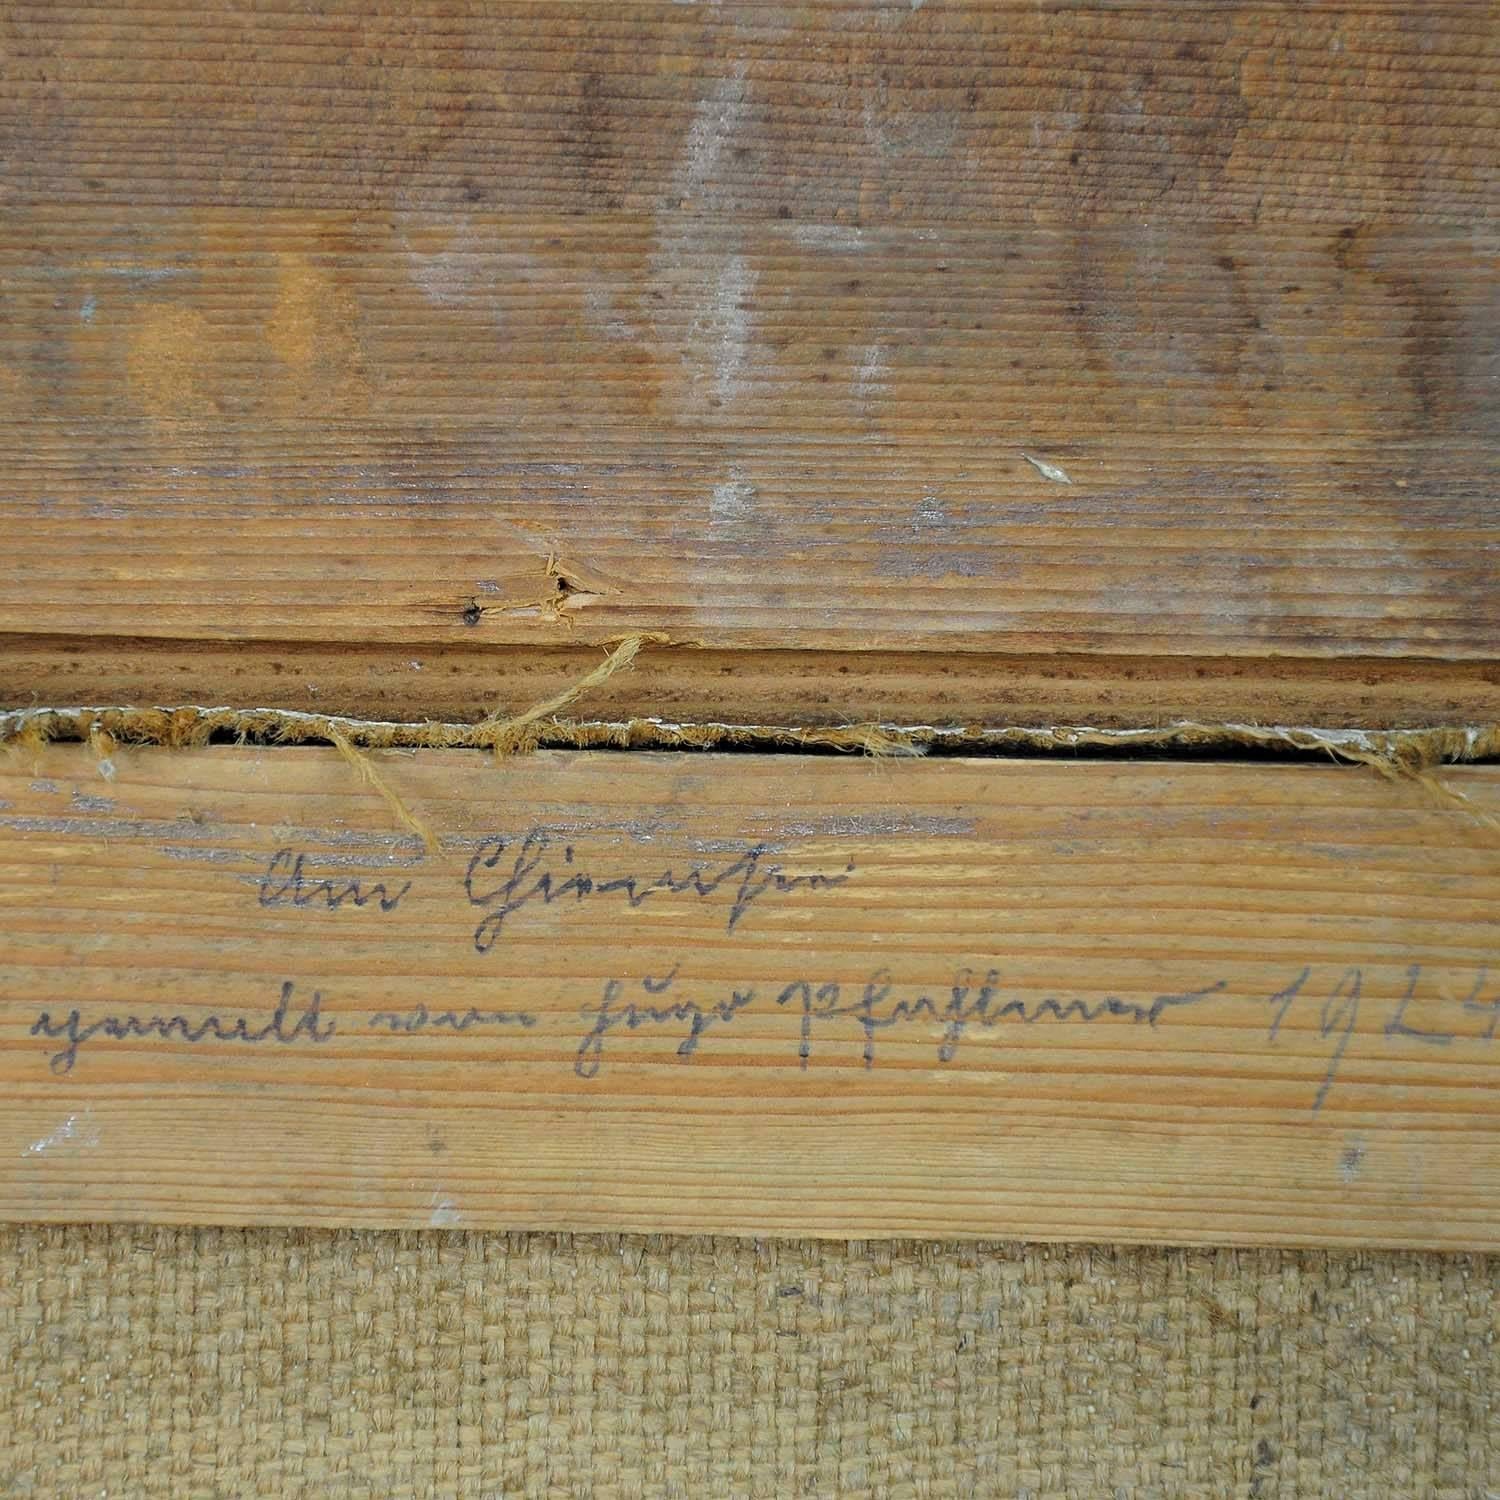 Am Chiemsee
gemalt von Hugo 1924